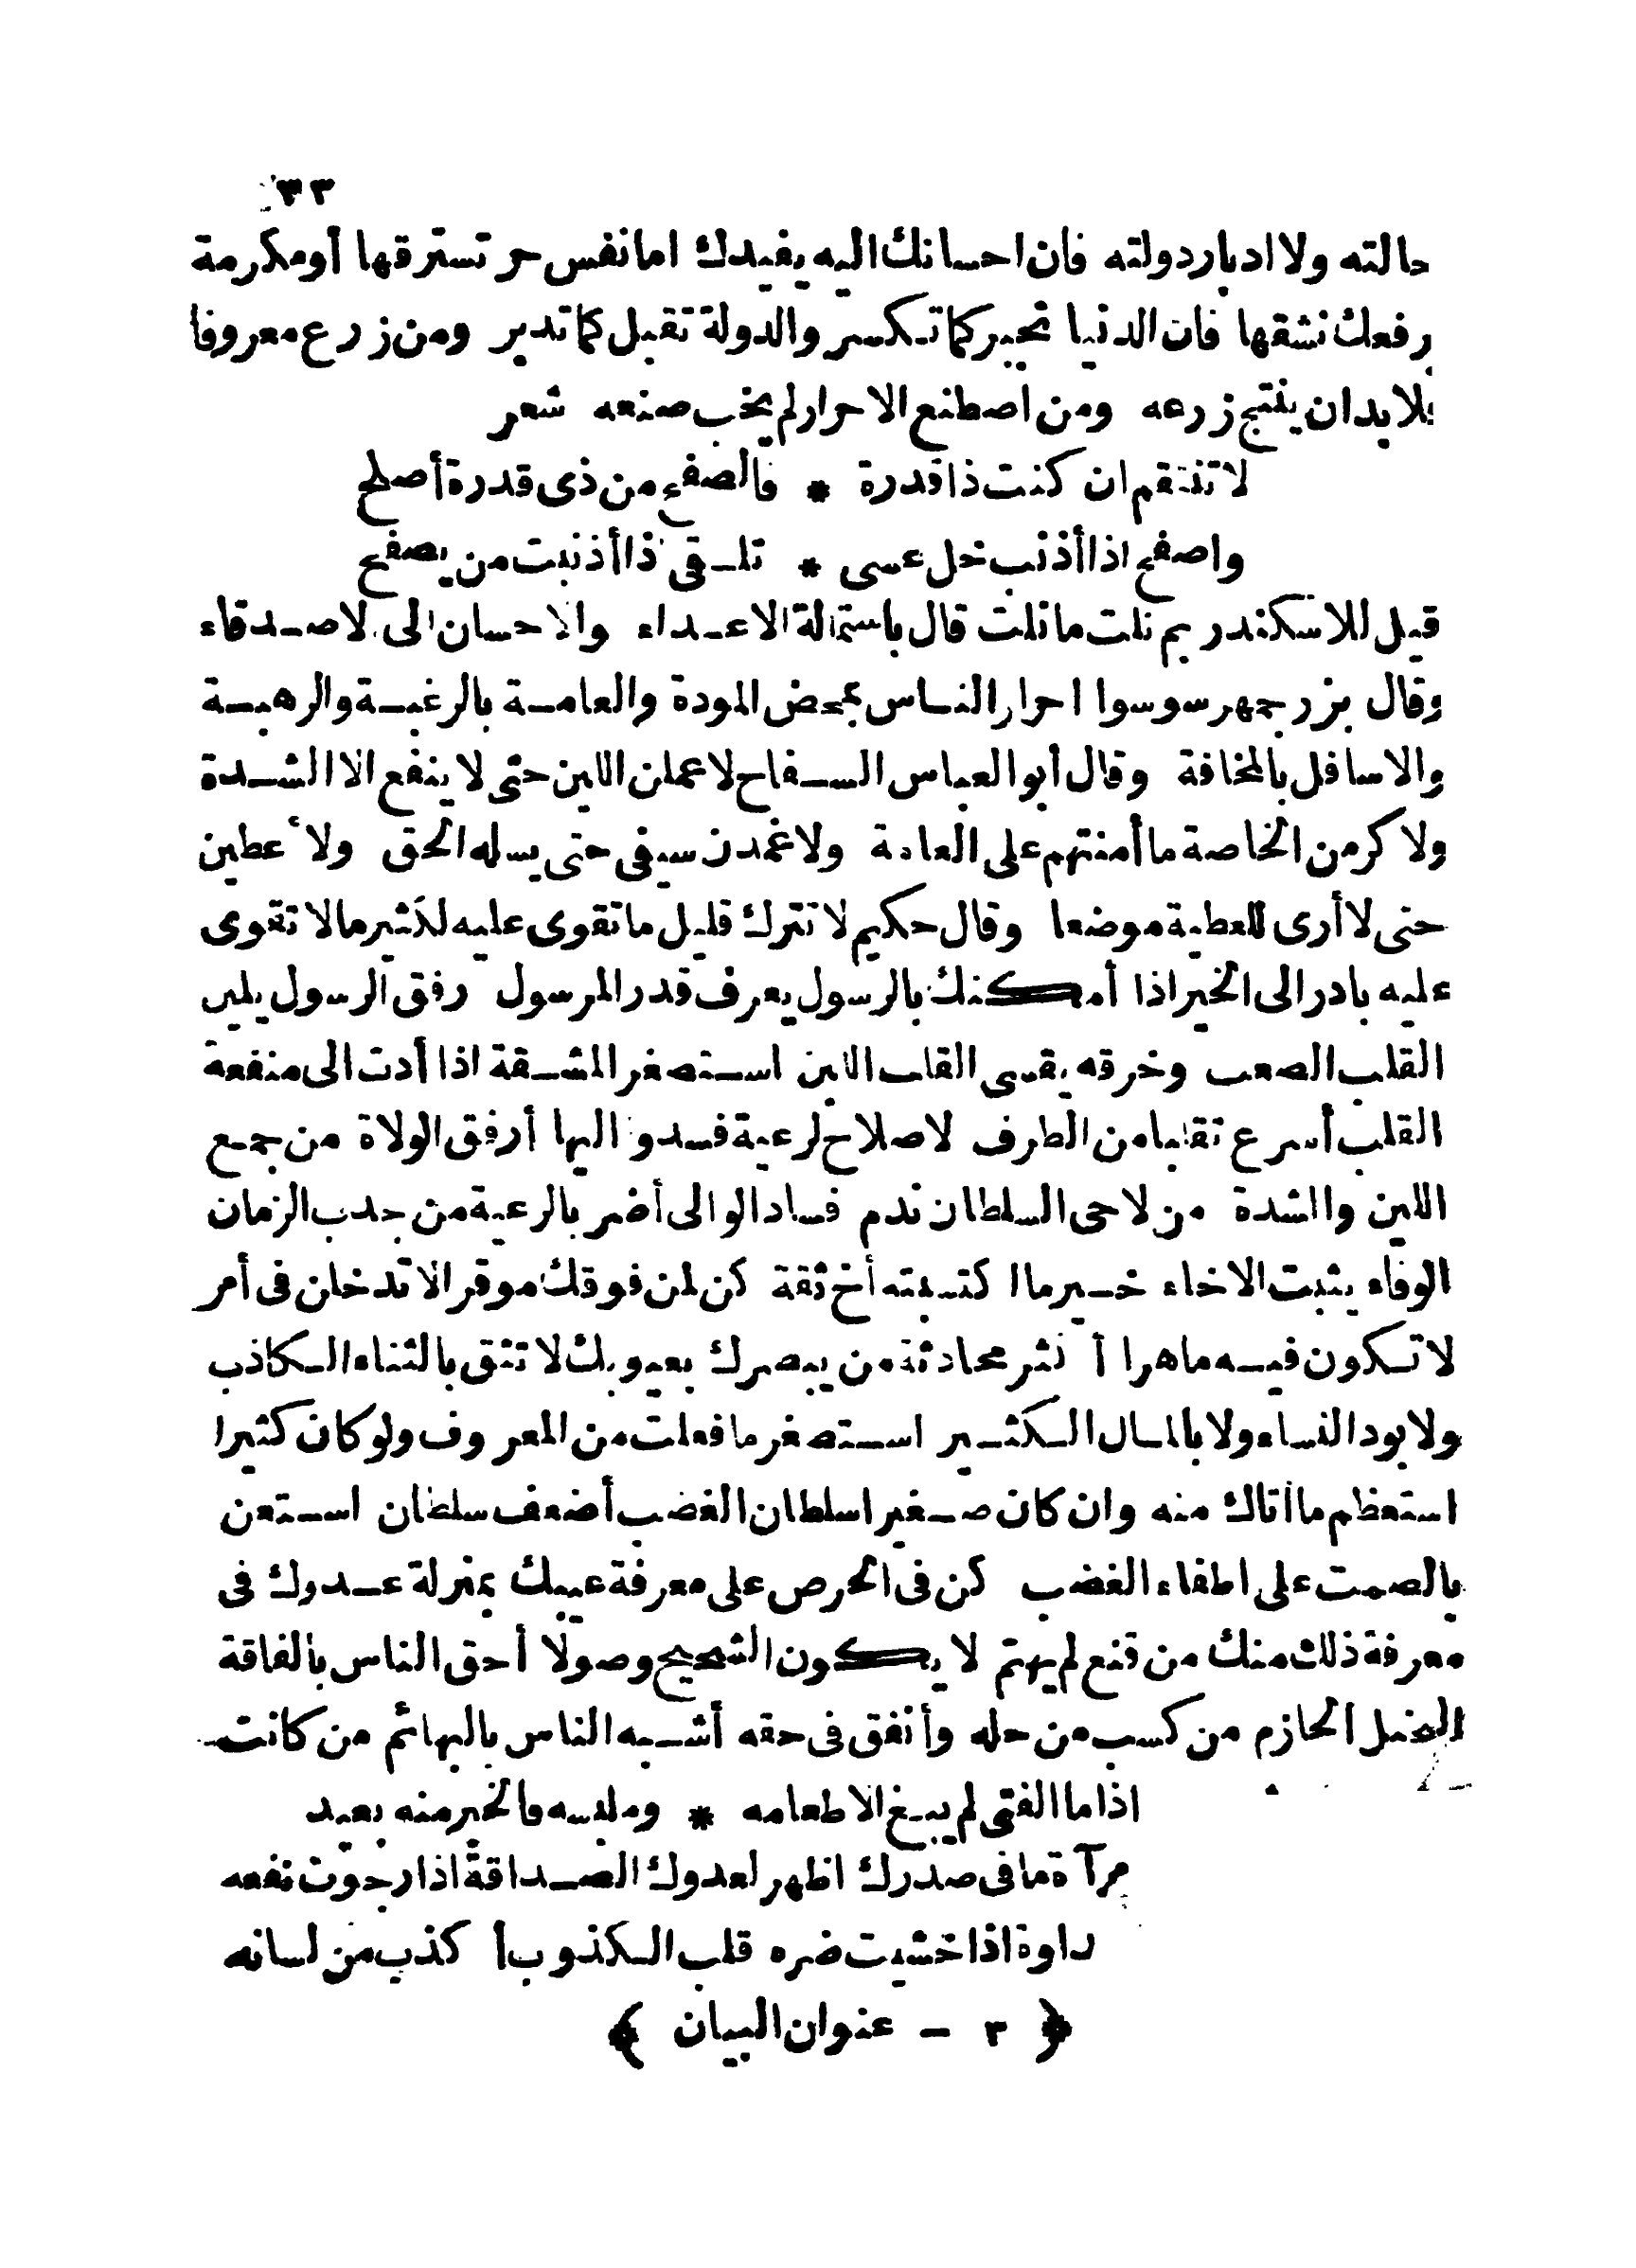 ٣٣
حالته ولا ادبار دولته فان احسانك اليه يفيدك اما نفس حر تسترقها أو مكرمة
رفعك نشقها فان الدنيا تجبر كما تكسر والدولة تقبل كما تدبر ومن زرع معروفا
فلا بد ان ينتج زرعه ومن اصطنع الاحرار لم يخب صنعه شعر
لا تنتقم ان كنت ذا قدرة * فالصفح من ذى قدرة أصلح
واصفح اذا أذنب خل عسى * تلقى اذا أذنبت من يصفح
قيل للاسكندر بم نلت ما نلت قال باستمالة الاعداء والاحسان الى الاصدقاء
وقال بزرجمهر سوسوا احرار الناس بمحض المودة والعامة بالرغبة والرهبة
والاسافل بالمخافة وقال أبو العباس السفاح لاعملن اللين حتى لا ينفع الا الشدة
ولا كرمن الخاصة ما أمنتهم على العامة ولاغمدن سيفى حتى يسله الحق ولأعطين
حتى لا أرى للعطية موضعا وقال حكيم لا تترك قليل ما تقوى عليه لكثير ما لا تقوى
عليه بادر الى الخير اذا أمكنك بالرسول يعرف قدر المرسول رفق الرسول يلين
القلب الصعب وخرقه يقسى القلب اللين استصغر المشقة اذا أدت الى منفعة
القلب أسرع تقلبا من الطرف لا صلاح لرعية فسد واليها أرفق الولاة من جمع
اللين والشدة من لاحى السلطان ندم فساد الوالى أضر بالرعية من جدب الزمان
الوفاء يثبت الاخاء خير ما اكتسبته أخ ثقة كن لمن فوقك موقرا لا تدخلن فى أمر
لا تكون فيه ماهرا أكثر محادثة من يبصرك بعيوبك لا تثق بالثناء الكاذب
ولا بود النساء ولا بالمال الكثير استصغر ما فعلت من المعروف ولو كان كثيرا
استعظم ما أتاك منه وان كان صغيرا سلطان الغضب أضعف سلطان استعن
بالصمت على اطفاء الغضب كن فى الحرص على معرفة عيبك بمنزلة عدوك فى
معرفة ذلك منك من قنع لم يهتم لا يكون الشحيح وصولا أحق الناس بالفاقة
البخيل الحازم من كسب من حله وأنفق فى حقه أشبه الناس بالبهائم من كانت
اذا ما الفتى لم يبغ الا طعامه * وملبسه فالخير منه بعيد
مرآة ما فى صدرك اظهر لعدوك الصداقة اذا رجوت نفعه
داوة اذا خشيت ضره قلب الكذوب أكذب من لسانه
﴿ ٣ - عنوان البيان ﴾